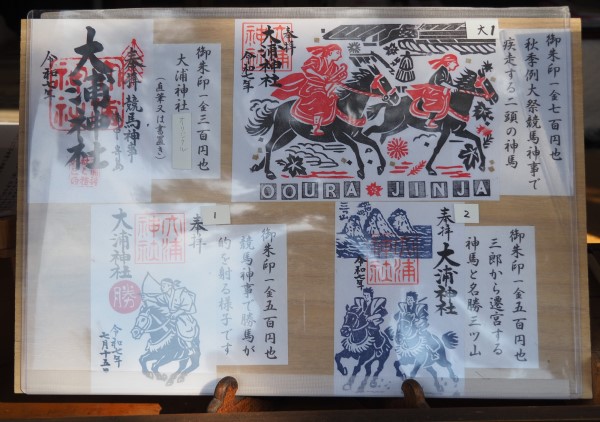 奉拝 競馬神事
大浦神社
令和七年
御朱印一金三百円也
大浦神社
(直筆又は書置き)
大1
奉拝
大浦神社
令和七年
OOURA JINJA
御朱印一金一千円也
秋季例大祭競馬神事で
疾走する二頭の神馬
1
奉拝
大浦神社
勝
令和七年
七月十五日
御朱印一金五百円也
競馬神事で勝馬が
的を射る様子です
2
三山
奉拝
大浦神社
令和七年
御朱印一金五百円也
三郎から遷宮する
神馬と名勝三ツ山